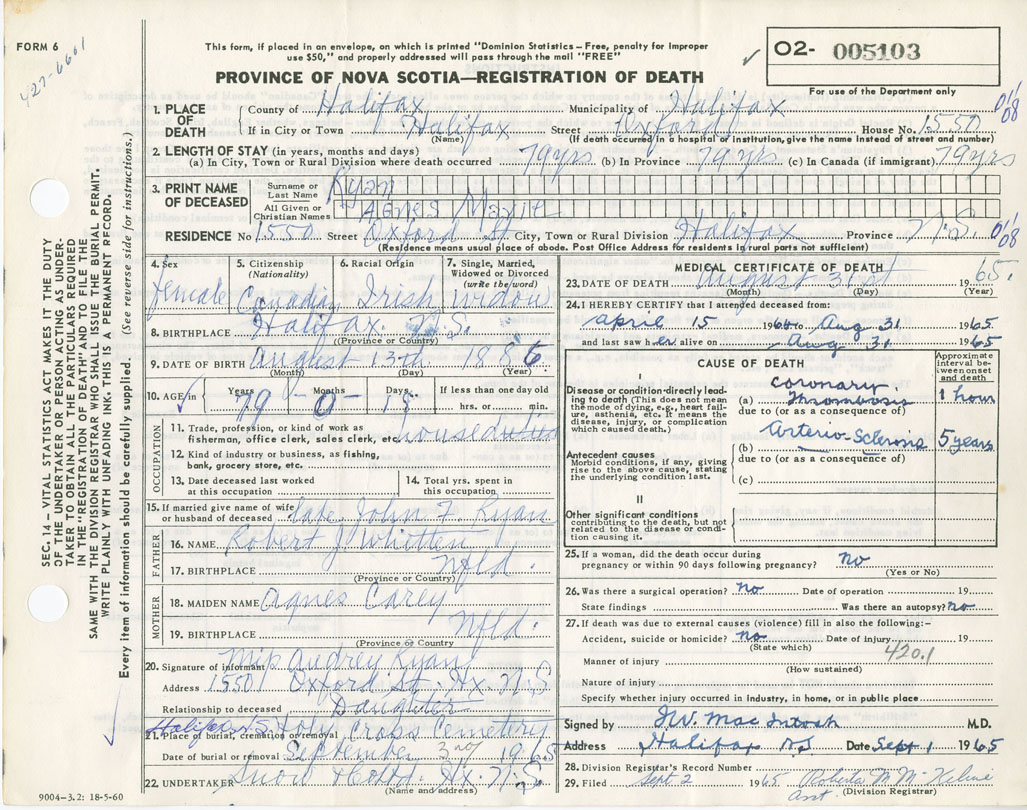 FORM 6
427-6661
This form, if placed in an envelope, on which is printed "Dominion Statistics—Free, penalty for improper
use $50," and properly addressed will pass through the mail "FREE"
PROVINCE OF NOVA SCOTIA—REGISTRATION OF DEATH
✓ O2- 005103
For use of the Department only
1. PLACE OF DEATH
County of Halifax Municipality of Halifax
If in City or Town Halifax Street Oxford House No. 1550
(Name) (If death occurred in a hospital or institution, give the name instead of street and number)
2. LENGTH OF STAY (in years, months and days)
(a) In City, Town or Rural Division where death occurred 79 yrs (b) In Province 79 yrs (c) In Canada (if immigrant) 79 yrs
3. PRINT NAME OF DECEASED
Surname or Last Name Ryan
All Given or Christian Names Agnes Marie
RESIDENCE No 1550 Street Oxford St City, Town or Rural Division Halifax Province N.S.
(Residence means usual place of abode. Post Office Address for residents in rural parts not sufficient)
4. Sex female
5. Citizenship (Nationality) Canadian
6. Racial Origin Irish
7. Single, Married, Widowed or Divorced (write the word) widow
8. BIRTHPLACE Halifax. N.S.
(Province or Country)
9. DATE OF BIRTH August 13th 1886
(Month) (Day) (Year)
10. AGE in ✓ Years 79 Months 0 Days 18 If less than one day old hrs. or min.
OCCUPATION
11. Trade, profession, or kind of work as fisherman, office clerk, sales clerk, etc. houseduties
12. Kind of industry or business, as fishing, bank, grocery store, etc.
13. Date deceased last worked at this occupation
14. Total yrs. spent in this occupation
15. If married give name of wife or husband of deceased late John F. Ryan
FATHER
16. NAME Robert J Whitten
17. BIRTHPLACE Nfld.
(Province or Country)
MOTHER
18. MAIDEN NAME Agnes Carey
19. BIRTHPLACE Nfld.
(Province or Country
20. Signature of informant Audrey Ryan
Address 1550 Oxford St. Hx. N.S.
Relationship to deceased Daughter
Halifax N.S. Holy Cross Cemetery
21. Place of burial, cremation or removal
Date of burial or removal September 3rd 1965
22. UNDERTAKER Snow Hx. N.S.
(Name and address)
MEDICAL CERTIFICATE OF DEATH
23. DATE OF DEATH August 31st 1965.
(Month) (Day) (Year)
24. I HEREBY CERTIFY that I attended deceased from:
April 15 19 to Aug 31 1965
and last saw her alive on Aug 31 1965
CAUSE OF DEATH
Approximate interval between onset and death
I
Disease or condition directly leading to death (This does not mean the mode of dying, e.g., heart failure, asthenia, etc. It means the disease, injury, or complication which caused death.)
(a) Coronary Thrombosis 1 hour
due to (or as a consequence of)
Antecedent causes
Morbid conditions, if any, giving rise to the above cause, stating the underlying condition last.
(b) Arterio-Sclerosis 5 years
due to (or as a consequence of)
(c)
II
Other significant conditions
contributing to the death, but not related to the disease or condition causing it.
25. If a woman, did the death occur during pregnancy or within 90 days following pregnancy? no
(Yes or No)
26. Was there a surgical operation? no Date of operation 19
State findings Was there an autopsy? no
27. If death was due to external causes (violence) fill in also the following:—
Accident, suicide or homicide? no Date of injury 19
(State which) 420.1
Manner of injury
(How sustained)
Nature of injury
Specify whether injury occurred in industry, in home, or in public place
Signed by MacIntosh M.D.
Address Halifax NS Date Sept 1 1965
28. Division Registrar's Record Number
29. Filed Sept 2 1965 Roberta M
asst. (Division Registrar)
SEC. 14—VITAL STATISTICS ACT MAKES IT THE DUTY
OF THE UNDERTAKER OR PERSON ACTING AS UNDER-
TAKER TO OBTAIN ALL THE PARTICULARS REQUIRED
IN THE "REGISTRATION OF DEATH" AND TO FILE THE
SAME WITH THE DIVISION REGISTRAR WHO SHALL ISSUE THE BURIAL PERMIT.
WRITE PLAINLY WITH UNFADING INK. THIS IS A PERMANENT RECORD.
Every item of information should be carefully supplied. (See reverse side for instructions.)
9004—3.2: 18-5-60